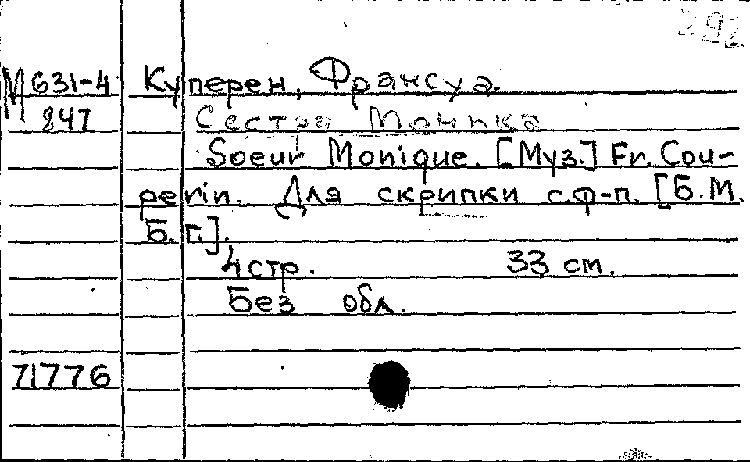 292
М631-4 Куперен, Франсуа.
847 Сестра Моника
Soeur Monique. [Муз.] Fr. Cou-
perin. Для скрипки с ф-п. [Б.М.
Б.г.].
4 стр. 33 см.
Без обл.
71776